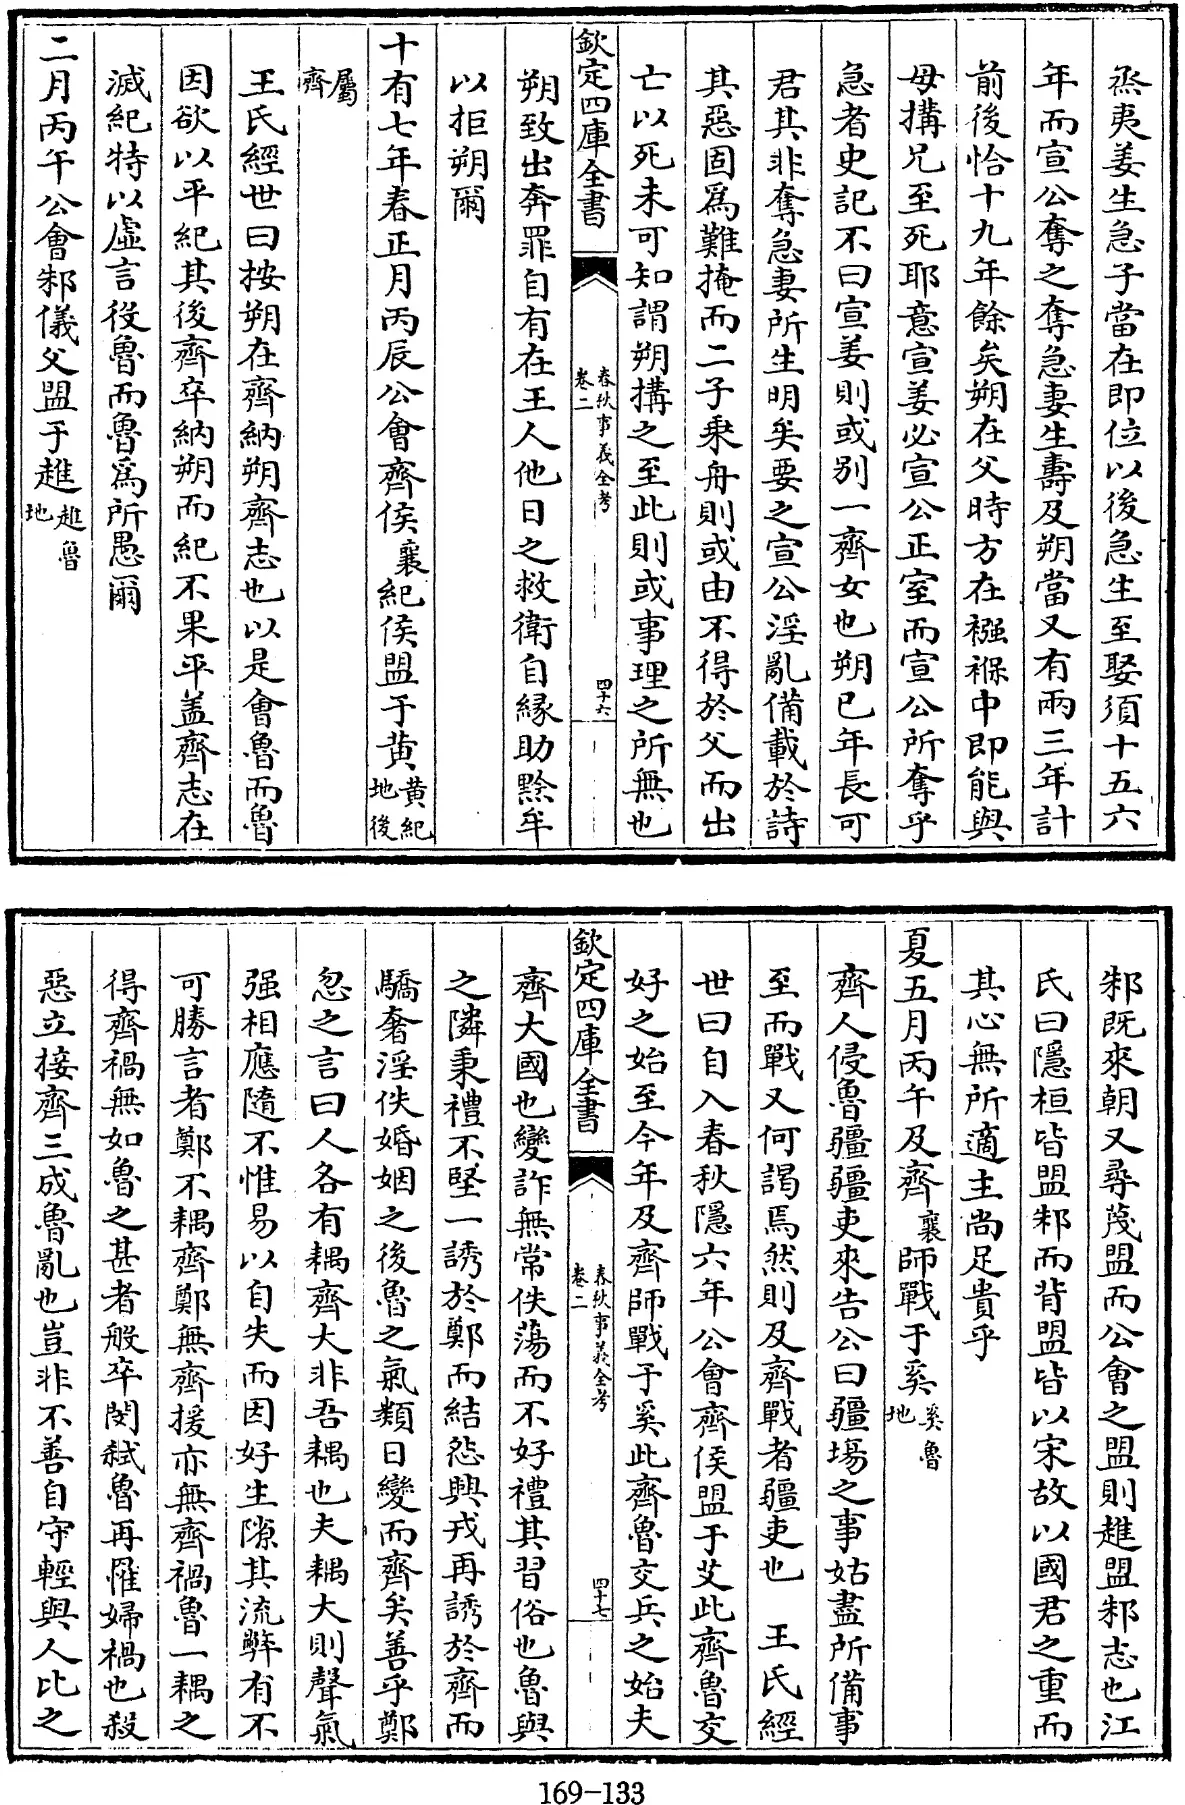 烝夷姜生急子當在即位以後急生至娶須十五六
年而宣公奪之奪急妻生壽及朔當又有兩三年計
前後恰十九年餘矣朔在父時方在襁褓中即能與
母搆兄至死耶意宣姜必宣公正室而宣公所奪乎
急者史記不曰宣姜則或别一齊女也朔已年長可
君其非奪急妻所生明矣要之宣公淫亂備載於詩
其惡固爲難掩而二子乘舟則或由不得於父而出
亡以死未可知謂朔搆之至此則或事理之所無也
欽定四庫全書
春秋事義全考
卷二
四十六
朔致出奔罪自有在王人他日之救衛自縁助黔牟
以拒朔爾
十有七年春正月丙辰公會齊侯襄紀侯盟于黄黄紀地後
屬齊
王氏經世曰按朔在齊納朔齊志也以是會魯而魯
因欲以平紀其後齊卒納朔而紀不果平盖齊志在
滅紀特以虚言役魯而魯爲所愚爾
二月丙午公會邾儀父盟于趡趡魯地
邾既來朝又尋蔑盟而公會之盟則趡盟邾志也江
氏曰隱桓皆盟邾而背盟皆以宋故以國君之重而
其心無所適主尚足貴乎
夏五月丙午及齊襄師戰于奚奚魯地
齊人侵魯疆疆吏來告公曰疆埸之事姑盡所備事
至而戰又何謁焉然則及齊戰者疆吏也 王氏經
世曰自入春秋隱六年公會齊侯盟于艾此齊魯交
好之始至今年及齊師戰于奚此齊魯交兵之始夫
欽定四庫全書
春秋事義全考
卷二
四十七
齊大國也變詐無常佚蕩而不好禮其習俗也魯與
之隣秉禮不堅一誘於鄭而結怨興戎再誘於齊而
驕奢淫佚婚姻之後魯之氣類日變而齊矣善乎鄭
忽之言曰人各有耦齊大非吾耦也夫耦大則聲氣
强相應隨不惟易以自失而因好生隙其流弊有不
可勝言者鄭不耦齊鄭無齊援亦無齊禍魯一耦之
得齊禍無如魯之甚者般卒閔弑魯再罹婦禍也殺
惡立接齊三成魯亂也豈非不善自守輕與人比之
169-133